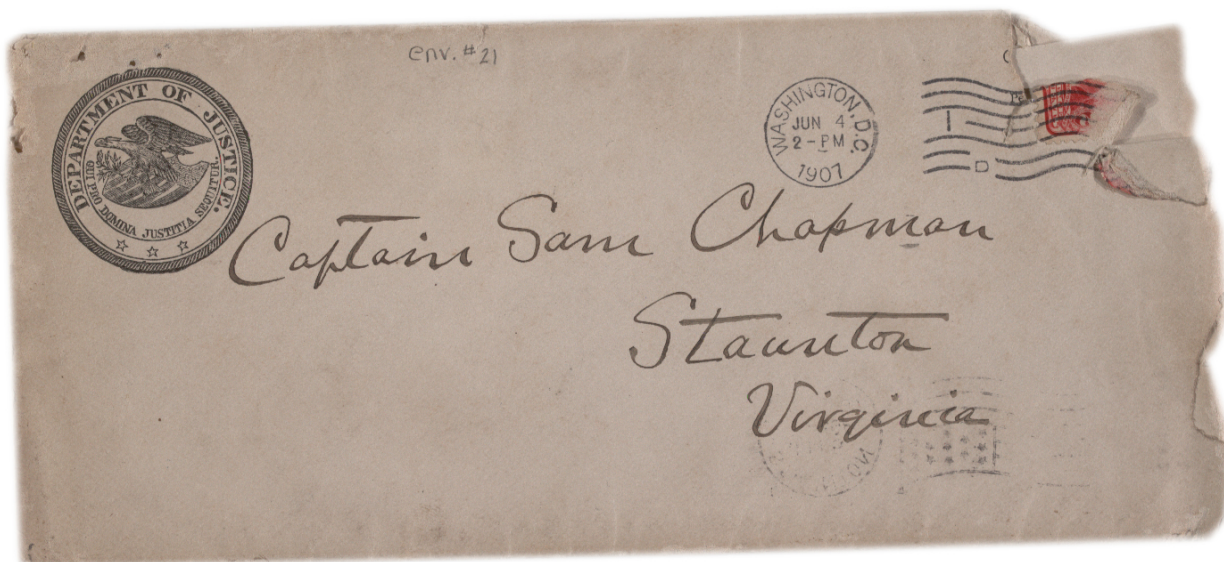 env. #21
DEPARTMENT OF JUSTICE.
QUI PRO DOMINA JUSTITIA SEQUITUR.
WASHINGTON, D.C.
JUN 4
2-PM
1907
D
Captain Sam Chapman
Staunton
Virginia